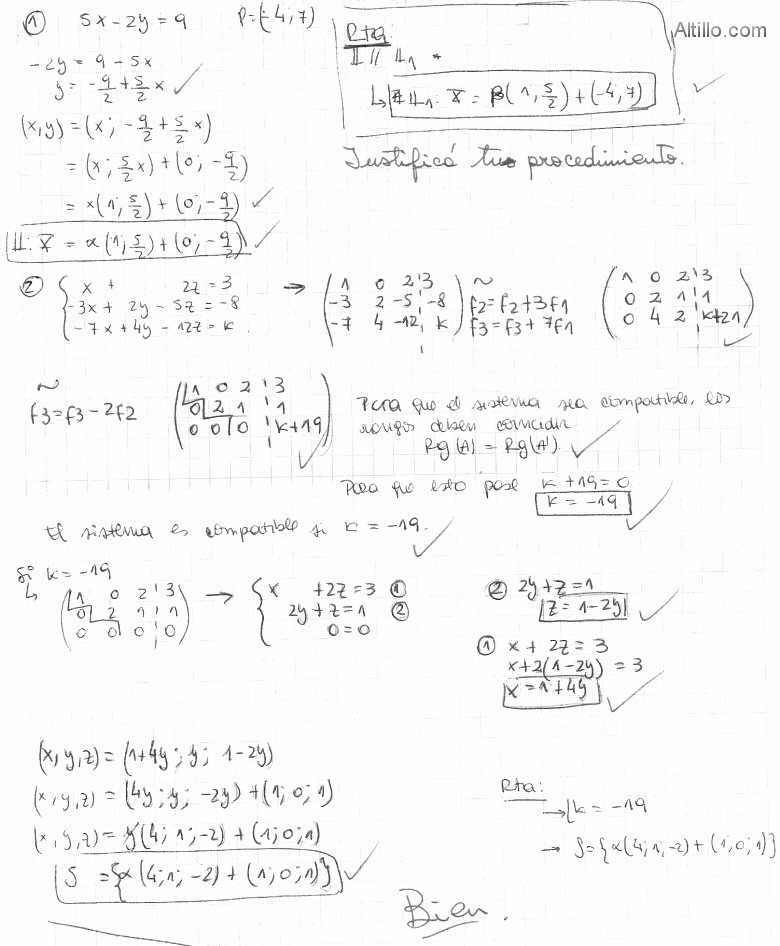 Altillo.com
① 5x - 2y = 9 P = (-4, 7)
-2y = 9 - 5x
y = -9/2 + 5/2 x
(x, y) = (x; -9/2 + 5/2 x)
= (x; 5/2 x) + (0; -9/2)
= x(1; 5/2) + (0; -9/2)
𝕃: X = α(1; 5/2) + (0; -9/2)
Rta
𝕃 // 𝕃1
↳ 𝕃1: X = β(1, 5/2) + (-4, 7)
Justificá tu procedimiento.
② { x + 2z = 3 → ( 1 0 2 ¦ 3 ) ~ ( 1 0 2 ¦ 3 )
-3x + 2y - 5z = -8 ( -3 2 -5 ¦ -8 ) f2 = f2 + 3f1 ( 0 2 1 ¦ 1 )
-7x + 4y - 12z = k ( -7 4 -12 ¦ k ) f3 = f3 + 7f1 ( 0 4 2 ¦ k+21 )
~
f3 = f3 - 2f2
( 1 0 2 ¦ 3 )
( 0 2 1 ¦ 1 )
( 0 0 0 ¦ k+19 )
Para que el sistema sea compatible, los
rangos deben coincidir
Rg(A) = Rg(A')
Para que esto pase k + 19 = 0
k = -19
El sistema es compatible si k = -19.
Si k = -19
↳ ( 1 0 2 ¦ 3 ) → { x + 2z = 3 ①
( 0 2 1 ¦ 1 ) 2y + z = 1 ②
( 0 0 0 ¦ 0 ) 0 = 0
② 2y + z = 1
z = 1 - 2y
① x + 2z = 3
x + 2(1 - 2y) = 3
x = 1 + 4y
(x, y, z) = (1+4y; y; 1-2y)
(x, y, z) = (4y; y; -2y) + (1; 0; 1)
(x, y, z) = y(4; 1; -2) + (1; 0; 1)
S = {α(4; 1; -2) + (1; 0; 1)}
Rta:
→ k = -19
→ S = {α(4; 1; -2) + (1; 0; 1)}
Bien.